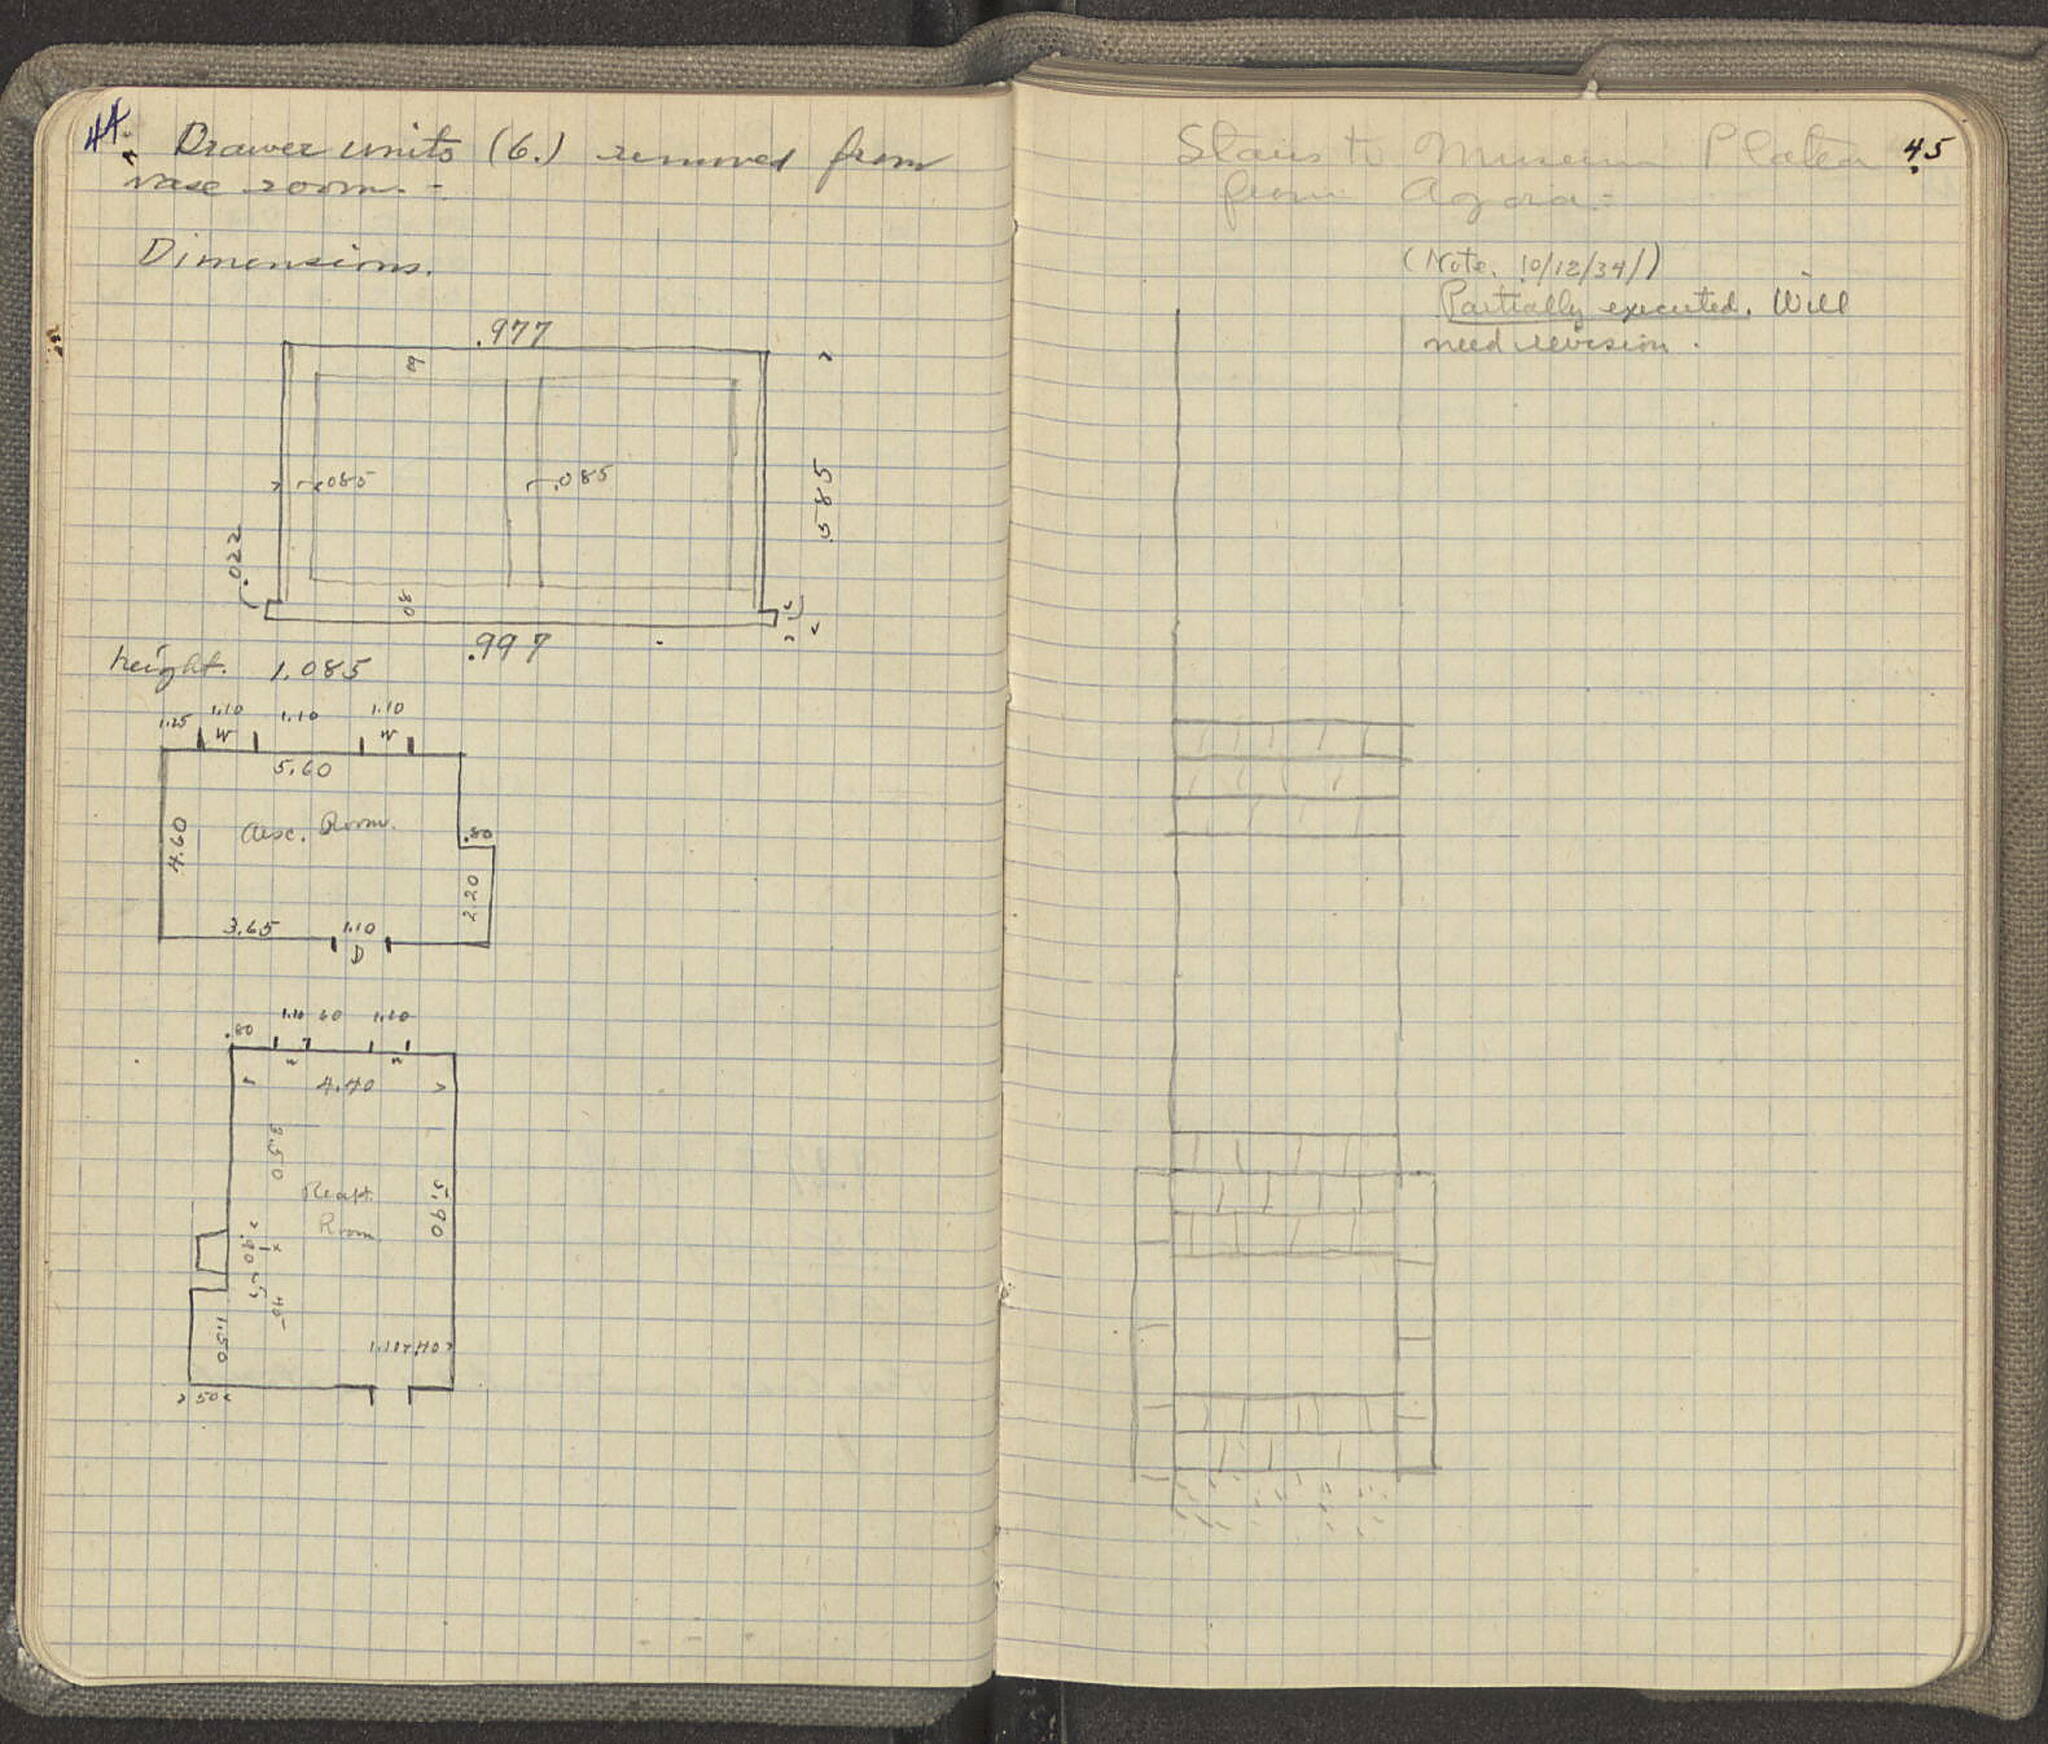 44.
Drawer units (6.) removed from
vase room. -
Dimensions.
.977
.085
.085
.585
.022
08
.997
height. 1.085
1.25 1.10 1.10 1.10
W W
5.60
Room.
.80
4.60
2.20
3.65 1.10
D
.80 1.10 60 1.10
4.40
3.50
5.90
Room
.90
40
1.50
50
45
Stairs to Museum Platea
from Agora.=
(Note. 10/12/34/)
Partially executed. Will
need revision.